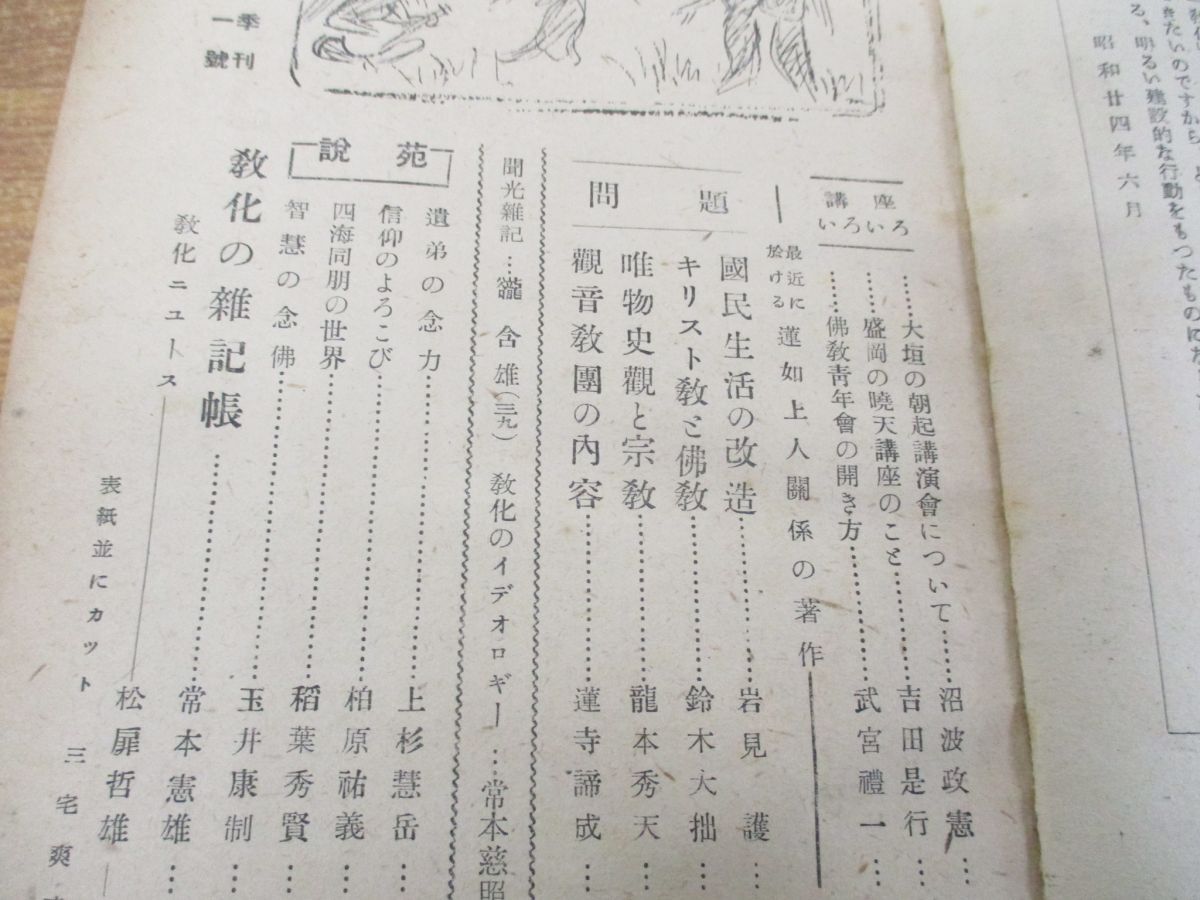 きたいのですから
る、明るい建設的な行動をもつたものにな
昭和廿四年六月
講座
いろいろ
……大垣の朝起講演會について……沼波政憲…
……盛岡の曉天講座のこと……吉田是行…
……佛敎靑年會の開き方……武宮禮一…
最近に於ける
蓮如上人關係の著作
問題
國民生活の改造……岩見護…
キリスト敎と佛敎……鈴木大拙…
唯物史觀と宗敎……龍本秀天…
觀音敎團の內容……蓮寺諦成…
聞光雜記…瀧含雄(三九)
敎化のイデオロギー…常本慈照
說苑
遺弟の念力……上杉慧岳…
信仰のよろこび……柏原祐義…
四海同朋の世界……稻葉秀賢…
智慧の念佛……玉井康制…
敎化の雜記帳……常本憲雄…
敎化ニユース
松扉哲雄
表紙並にカット
三宅爽
季刊
一號